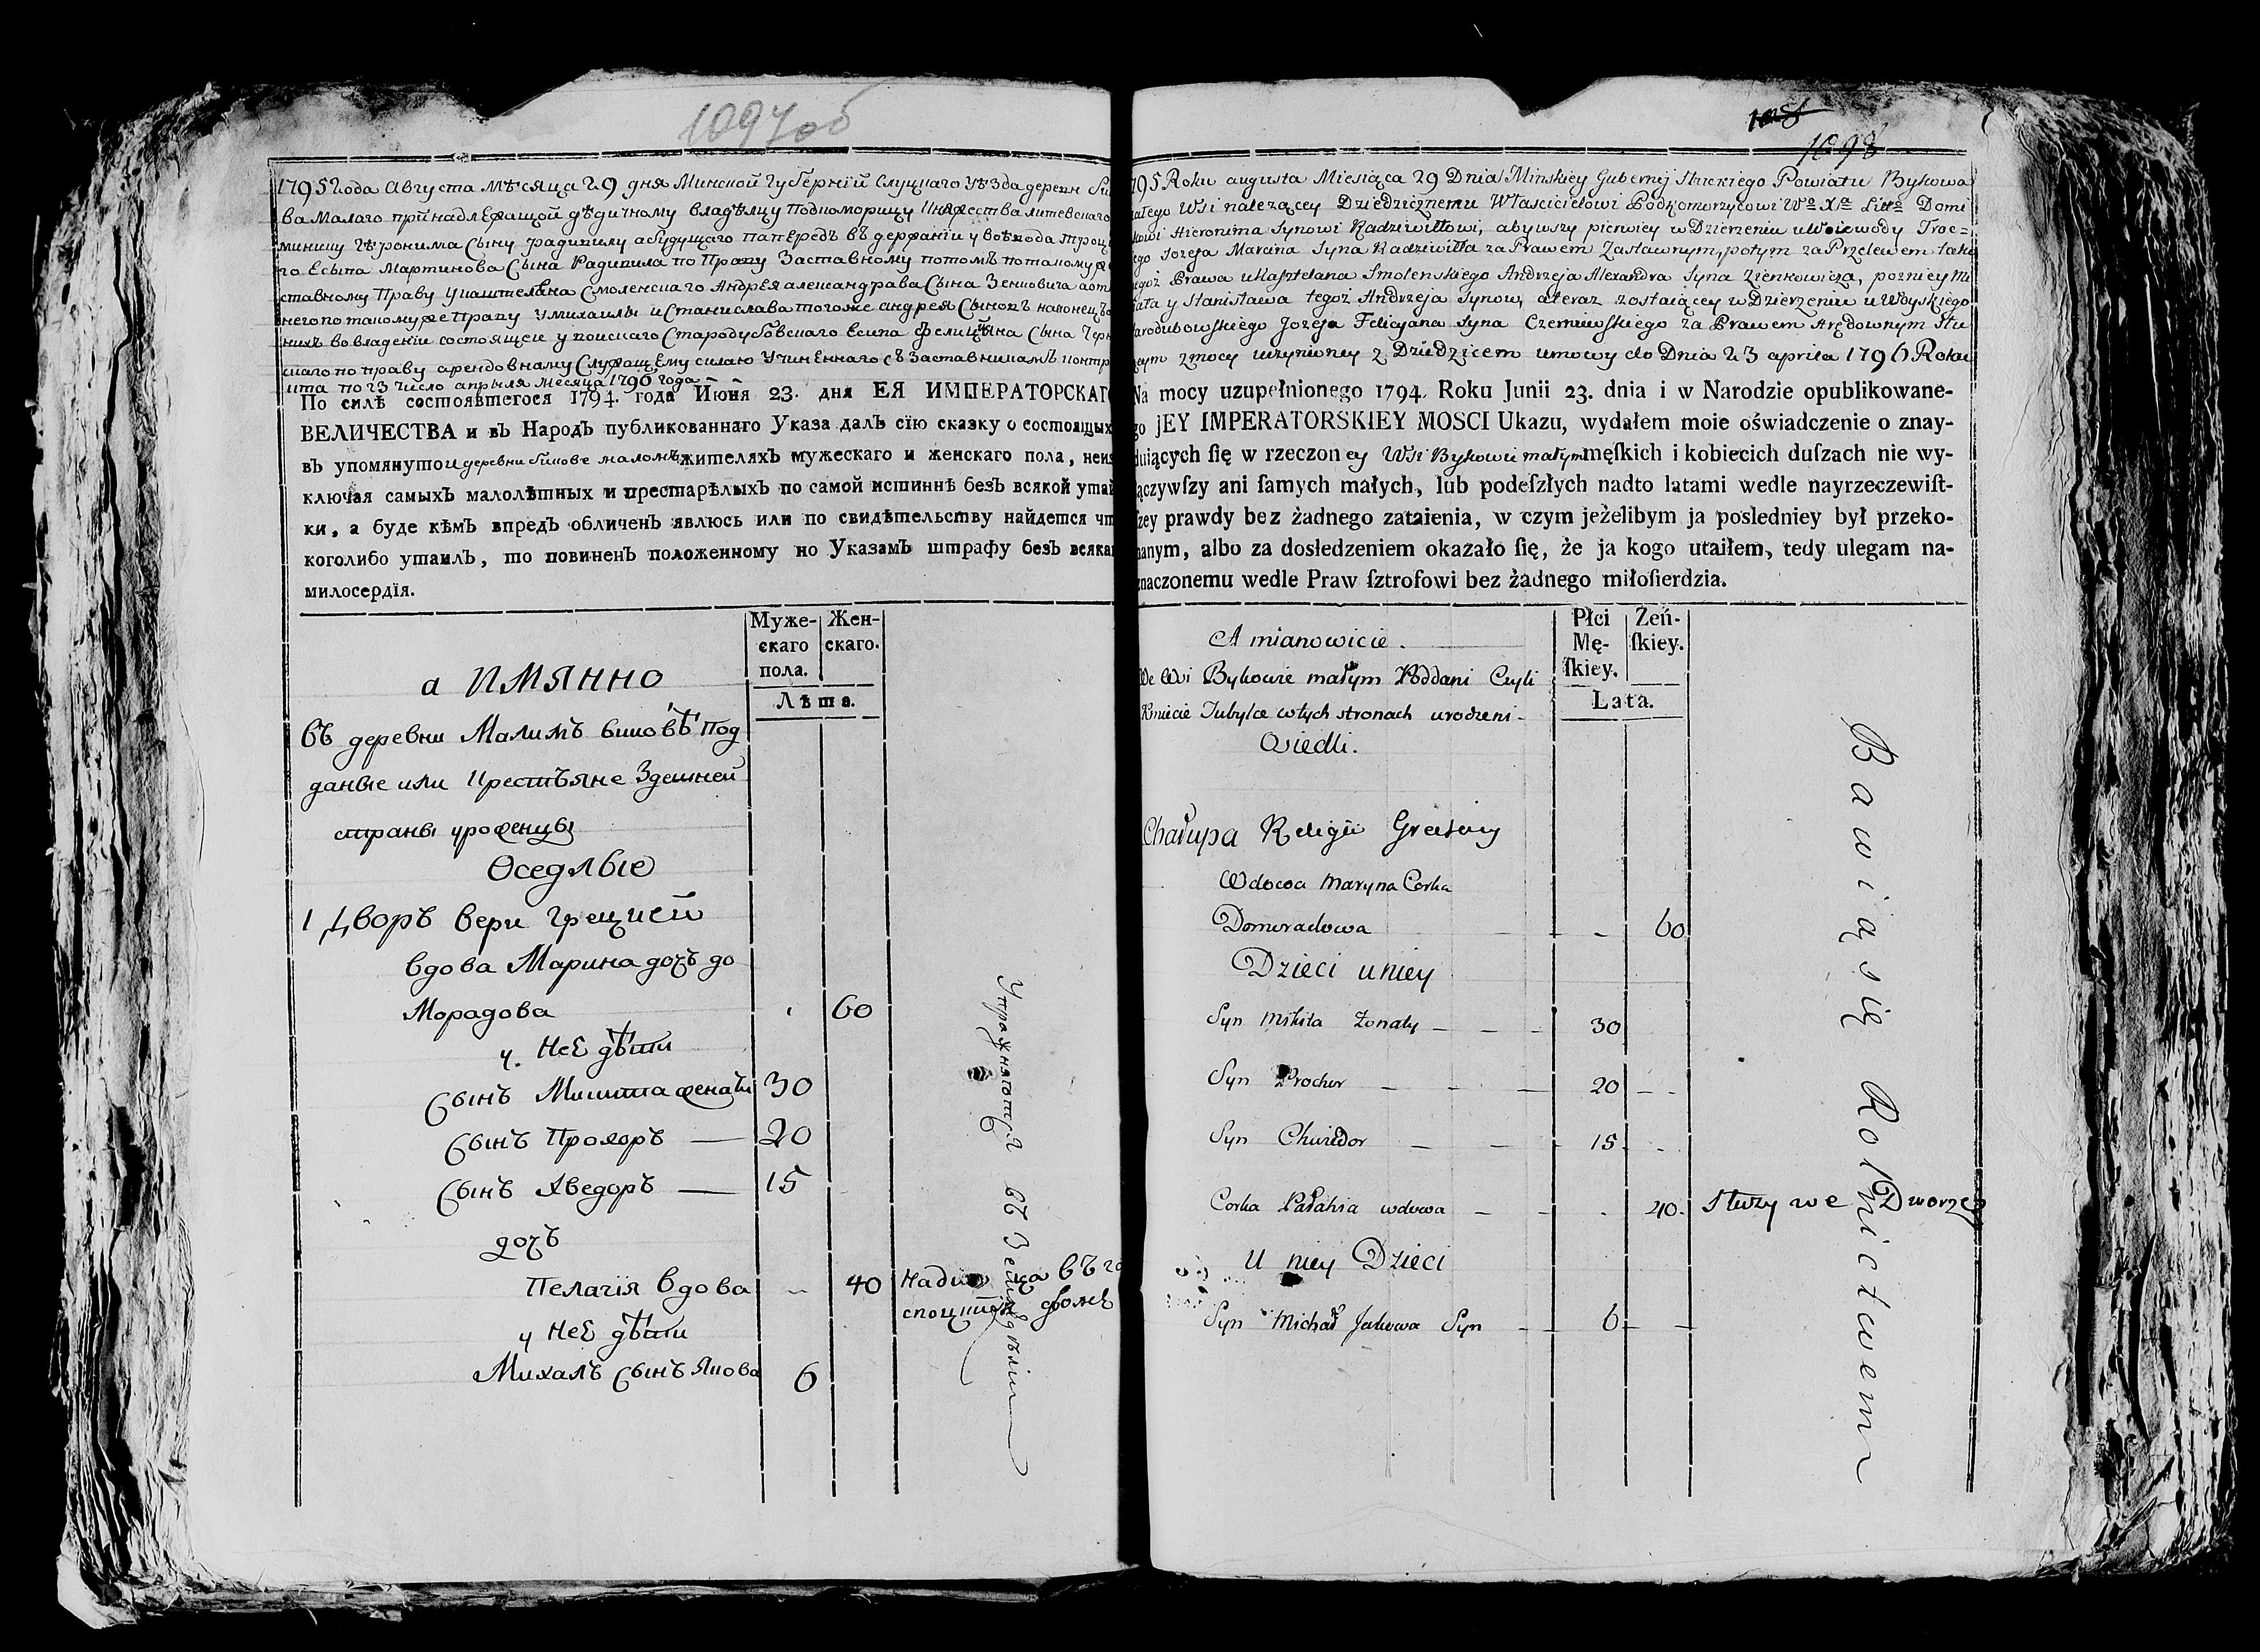 1097об
1795 года Августа мѣсяца 29 дня Минской Губернїи Слуцкаго уѣзда деревн
ва Малаго принадлежащой дѣдичному владѣлцу Подкоморицу Княжества литевскаго
миницу Геронима Сыну Радзивилу а будущаго паперодъ въ держанїи у воеводы Троц
го Есыпа Мартинова Сына Радивила по Праву Заставному потомъ по такому же
ставному Праву у каштеляна Смоленскаго Андрея александрава Сына Зенковича
него по такому же Праву у михаилы и Станиславатогоже андрея Сыновъ наконецъ
нихъ во владенїе состоящей у войскаго Стародубовскаго Есипа Фелицияна Сына Черн
скаго по праву арендовному Служащему силою Учиненнаго съ Заставникамъ контр
кта по 23 число апрыля месяца 1796 года
По силѣ состоявшегося 1794. года Июня 23. дня ЕЯ ИМПЕРАТОРСКАГ
ВЕЛИЧЕСТВА и въ Народъ публикованнаго Указа далъ сїю сказку о состоящих
въ упомянутой деревни Бикове маломъ жителяхъ мужескаго и женскаго пола, неиз
ключая самыхъ малолѣтных и престарѣлыхъ по самой истиннѣ безъ всякой утай
ки, а буде кѣмъ впредь обличенъ явлюсь или по свидѣтельству найдется чт
коголибо утаилъ, то повиненъ положенному по Указамъ штрафу безъ всяка
милосердїя.
Муже-
скаго
пола.
Жен-
скаго.
Лѣта.
а ИМЯННО
въ деревни Малимъ биковѣ Под
даные или Крестъяне Здешней
страны уроженцы
Оседлые
1 Дворъ вери Грецкей
вдова Марина дочъ до
Морадова 60
у Неё дѣти
Сынъ Микита женатъ 30
Сынъ Прохоръ — 20
Сынъ Хведоръ — 15
дочъ
Пелагїя вдова 40
у Неё дѣти
Михалъ Сынъ Якова 6
Упражняютця въ Земледѣлїи
1098
1795 Roku augusta Miesiąca 29 Dnia Minskiey Gubernij Słuckiego Powiatu Bykowa
ałego Wsi należącey Dziedzicznemu Włascicielowi Podkomorzycowi Wo Xa Litto Domi
kowi Hieronima Synowi Radziwiłłowi, abywszy pierwiey w Dzierżeniu u Woiewody Troc=
ego Jozefa Marcina Syna Radziwiłła za Prawem Zastawnym, potym za Przelewem taki
egoż Prawa u Kasztelana Smolenskiego Andrzeja Alexandra Syna Zienkowicza, pozniey Mi
ała y Stanisława tegoż Andrzeja Synow, ateraz zostaiącey w Dzierżeniu u Woyskiego
tarodubowskiego Jozefa Felicyana Syna Czerniewskiego za Prawem Arędownym Słu
ącym zmocy uczynioney z Dziedzicem umowy do Dnia 23 aprila 1796 Roku
Na mocy uzupełnionego 1794. Roku Junii 23. dnia i w Narodzie opublikowane-
go JEY IMPERATORSKIEY MOSCI Ukazu, wydałem moie oświadczenie o znay-
duiących ſię w rzeczoney Wsi Bykowie małym męſkich i kobiecich duſzach nie wy-
łączywſzy ani ſamych małych, lub podeſzłych nadto latami wedle nayrzeczewiſt-
ſzey prawdy bez żadnego zataienia, w czym jeżelibym ja posledniey był przeko-
nanym, albo za dosłedzeniem okazało ſię, że ja kogo utaiłem, tedy ulegam na-
znaczonemu wedle Praw ſztrofowi bez żadnego miłoſierdzia.
Płci
Mę-
ſkiey.
Zeń-
ſkiey.
Lata.
A mianowicie.
We Wsi Bykowie małym Poddani Czyli
Kmiecie Tubylce w tych stronach urodzeni.
Osiedli.
Chałupa Religii Greckiey
Wdowa Maryna Corka
Domoradowa - 60
Dzieci u niey
Syn Mikita żonaty - - - 30
Syn Prochor - - - 20 - -
Syn Chwiedor - - - 15 - -
Corka Pałahia wdowa - - - 40. Służy we Dworze
U niey Dzieci
Syn Michał Jakowa Syn - 6 - -
Bawią się Rolnictwem